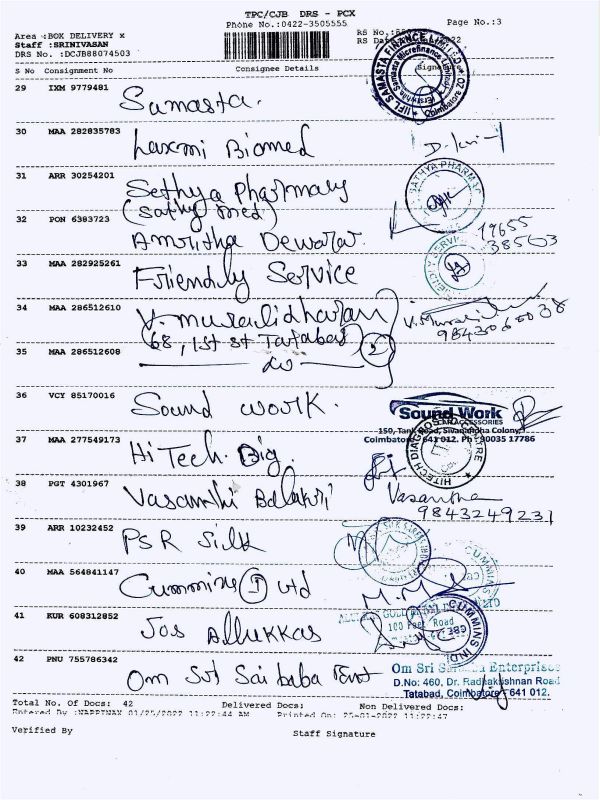 TPC/CJB DRS - PCX
Phone No.:0422-3505555
Page No.:3
Area :BOK DELIVERY x
Staff :SRINIVASAN
DRS No. :DCJB88074503
RS No.
RS Da
S No Consignment No
Consignee Details
Signature
IIFL SAMASTA FINANCE LIMITED
Coimbatore
29 IXM 9779481
Samasta.
30 MAA 282835783
Laxmi Biomed
31 ARR 30254201
Sathya Pharmacy
(Sathy med)
SATHYA PHARMAC
32 PON 6383723
Amritha Dewarar.
19655
38503
33 MAA 282925261
Friendly Service
34 MAA 286512610
V. Muralidharan
(68, 1st st Tatabad) 2
V. Murali
9843060038
35 MAA 286512608
do
36 VCY 85170016
Sound work.
Sound Work
CAR ACCESSORIES
159, Tank Road, Sivanandha Colony,
Coimbatore - 641 012. Ph : 90035 17786
37 MAA 277549173
Hi Tech. Dig.
HITECH DIAGNOSTIC CENTRE
38 PGT 4301967
Vasanthi Balakri
Vasantha
9843249231
39 ARR 10232452
PSR Silk
40 MAA 564841147
Cummins (I) Ltd
41 KUR 608312852
Jos Allukkas
100 Feet Road
CUMMINS INDI
42 PNU 755786342
Om Sri Sai baba Ent
Om Sri Enterprises
D.No: 460, Dr. Radhakushnan Road
Tatabad, Coimbatore - 641 012.
Total No. Of Docs: 42
Delivered Docs:
Non Delivered Docs:
Entered By :NAPPINAX 01/25/2022 11:22:44 AM
Printed On: 25-01-2022 11:22:47
Verified By
Staff Signature